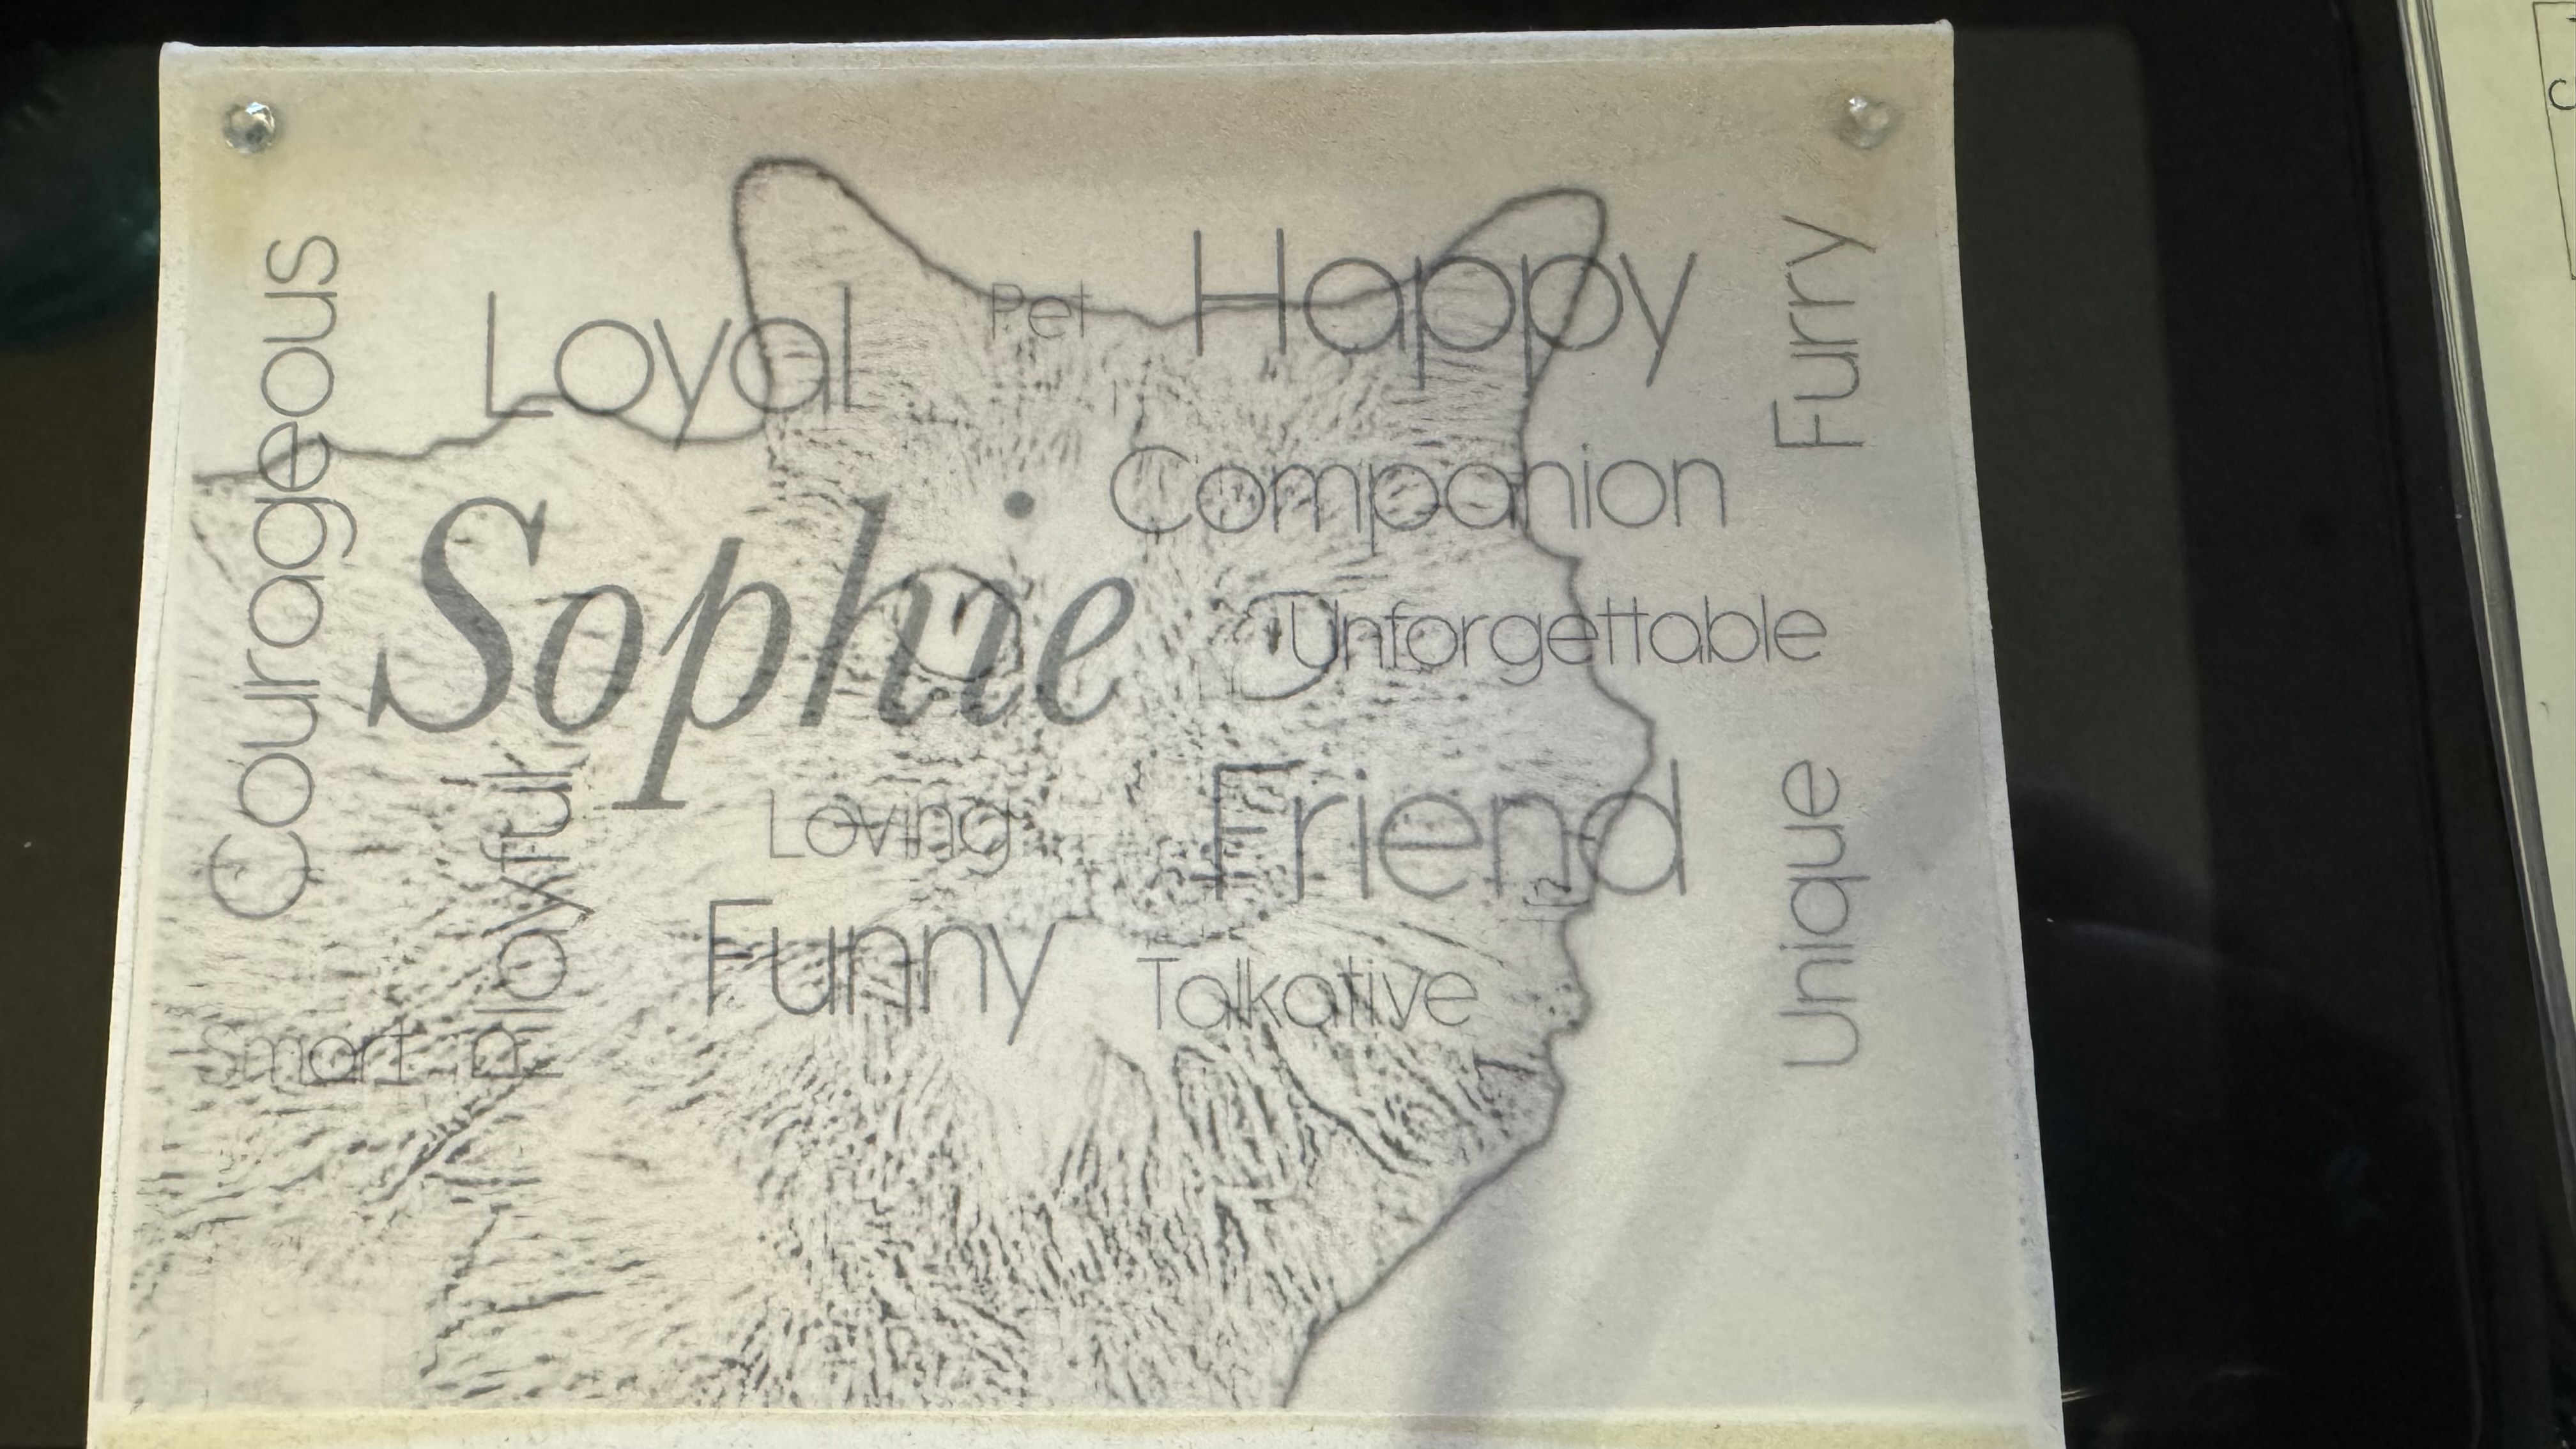 Courageous
Loyal
Pet
Happy
Furry
Companion
Sophie
Unforgettable
Playful
Loving
Friend
Unique
Funny
Talkative
Smart
C